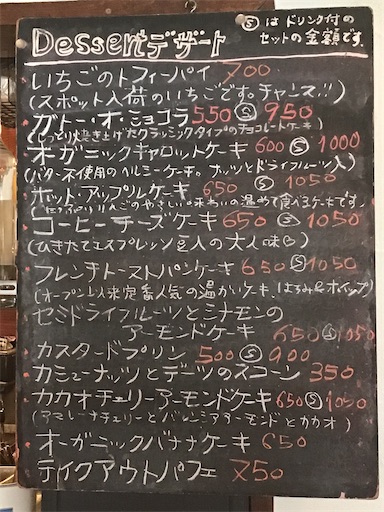 Dessertデザート
Ⓢ は ドリンク付の
セットの金額です。
いちごのトフィーパイ 700
(スポット入荷のいちごです。チャーンス!!)
ガトー・オ・ショコラ 550 Ⓢ 950
(しっとり焼き上げたクラッシックタイプのチョコレートケーキ)
オーガニックキャロットケーキ 600 Ⓢ 1000
(バター不使用のヘルシーケーキ。ナッツとドライフルーツ入)
ホット・アップルケーキ 650 Ⓢ 1050
りんごのやさしい味わいの温めて食べるケーキです
コーヒーチーズケーキ 650 Ⓢ 1050
(ひきたてエスプレッソ豆入の大人味)
フレンチトーストパンケーキ 650 Ⓢ 1050
(オープン以来定番人気の温かいケーキ。はちみつ&ホイップ)
セミドライフルーツとシナモンの
アーモンドケーキ 650 Ⓢ 1050
カスタードプリン 500 Ⓢ 900
カシューナッツとデーツのスコーン 350
カカオチェリーアーモンドケーキ 650 Ⓢ 1050
(アマレーナチェリーとバレンシアアーモンドとカカオ)
オーガニックバナナケーキ 650
テイクアウトパフェ 750